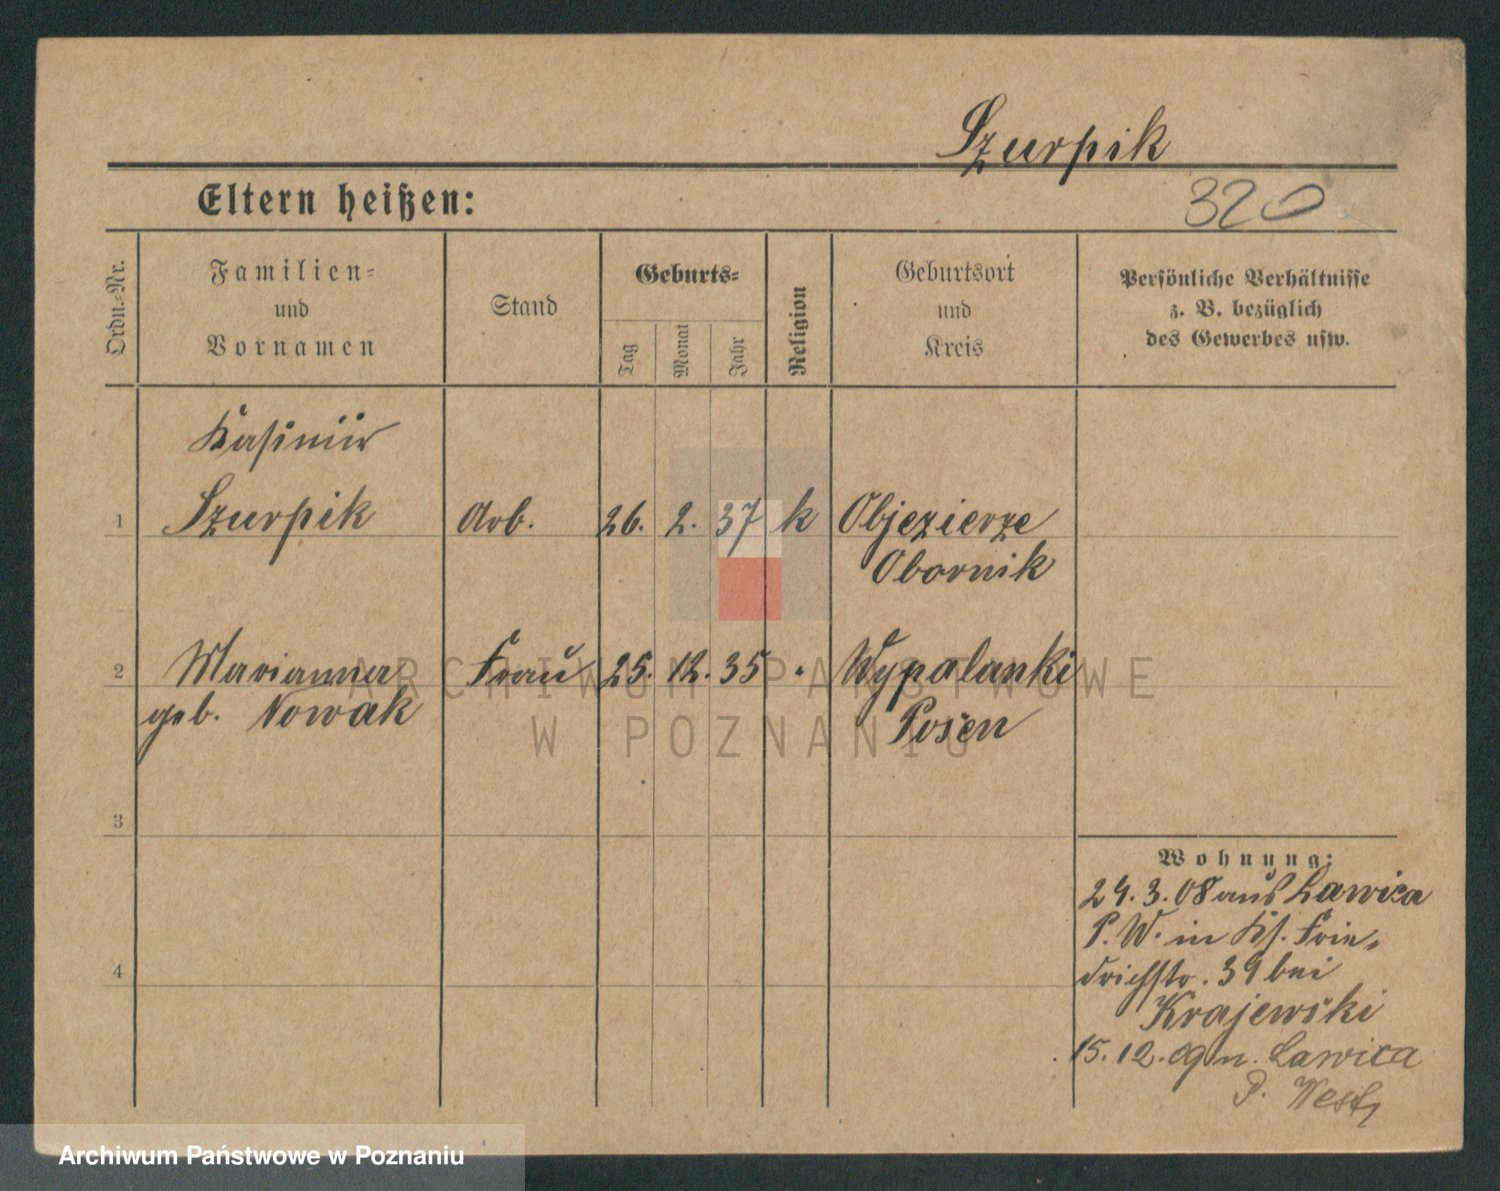 Szurpik
Eltern heißen:
320
Ordn.-Nr.
Familien-
und
Vornamen
Stand
Geburts-
Tag
Monat
Jahr
Religion
Geburtsort
und
Kreis
Persönliche Verhältnisse
z. B. bezüglich
des Gewerbes usw.
Kasimir
1 Szurpik Arb. 26. 2. 37 k Objezierze
Obornik
2 Marianna Frau 25. 12. 35 " Wypalanki
geb. Nowak Posen
ARCHIWUM PAŃSTWOWE
W POZNANIU
3
Wohnung:
24. 3. 08 aus Lawica
P. W. in Ks. Frie-
4
drichstr. 39 bei
Krajewski
15. 12. 09 n. Lawica
P. West
Archiwum Państwowe w Poznaniu